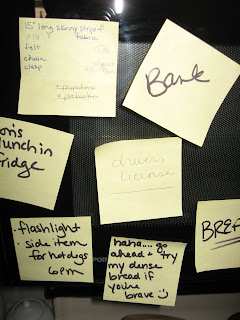 15" long skinny strip of
fabric
felt
chain
clasp
Bank
on's
lunch in
fridge
drivers
license
BREA
• flashlight
• side item
for hotdogs
6pm
haha.... go
ahead + try
my dense
bread if
you're
brave :)